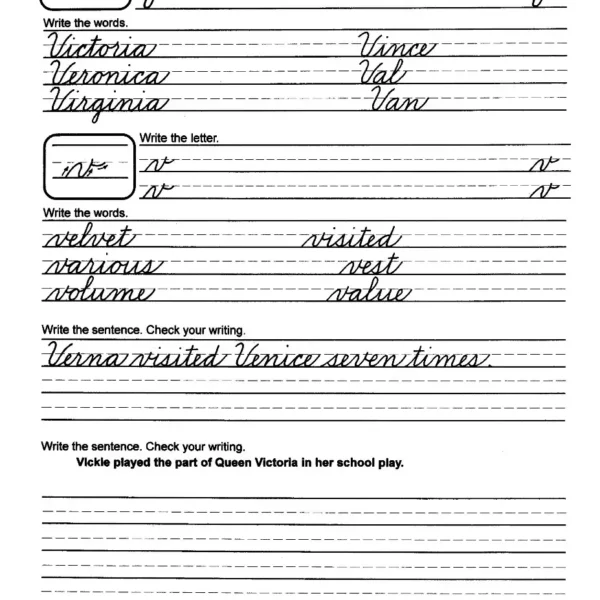 Write the words.
Victoria Vince
Veronica Val
Virginia Van
Write the letter.
v v v
v v
Write the words.
velvet visited
various vest
volume value
Write the sentence. Check your writing.
Verna visited Venice seven times.
Write the sentence. Check your writing.
Vickie played the part of Queen Victoria in her school play.